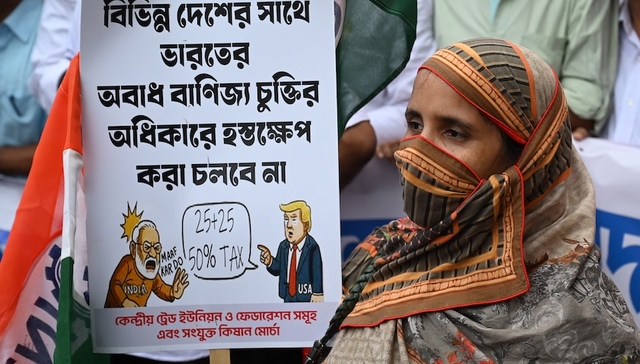 বিভিন্ন দেশের সাথে
ভারতের
অবাধ বাণিজ্য চুক্তির
অধিকারে হস্তক্ষেপ
করা চলবে না
25+25
50% TAX
MAAF
KAR DO
INDIA
USA
কেন্দ্রীয় ট্রেড ইউনিয়ন ও ফেডারেশন সমূহ
এবং সংযুক্ত কিষান মোর্চা